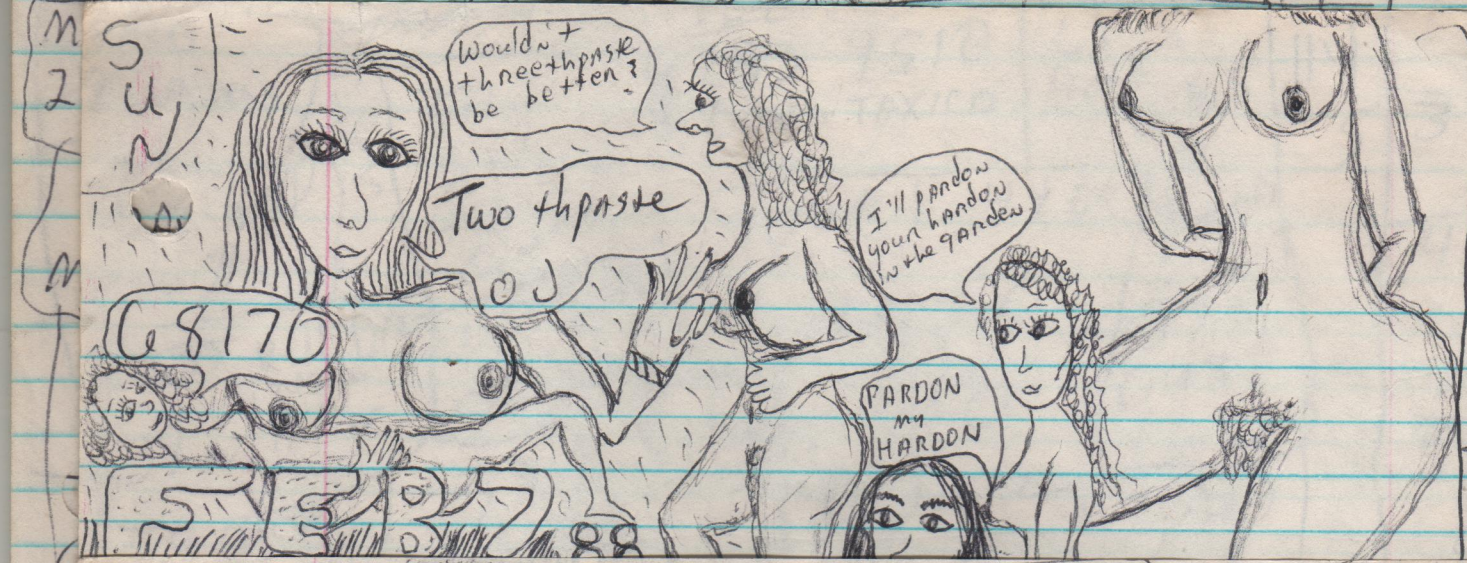 SUN
Wouldn't
threethpaste
be better?
Two thpaste
OJ
I'll pardon
your hardon
in the garden
G8170
PARDON
my
HARDON
FEB 7 88